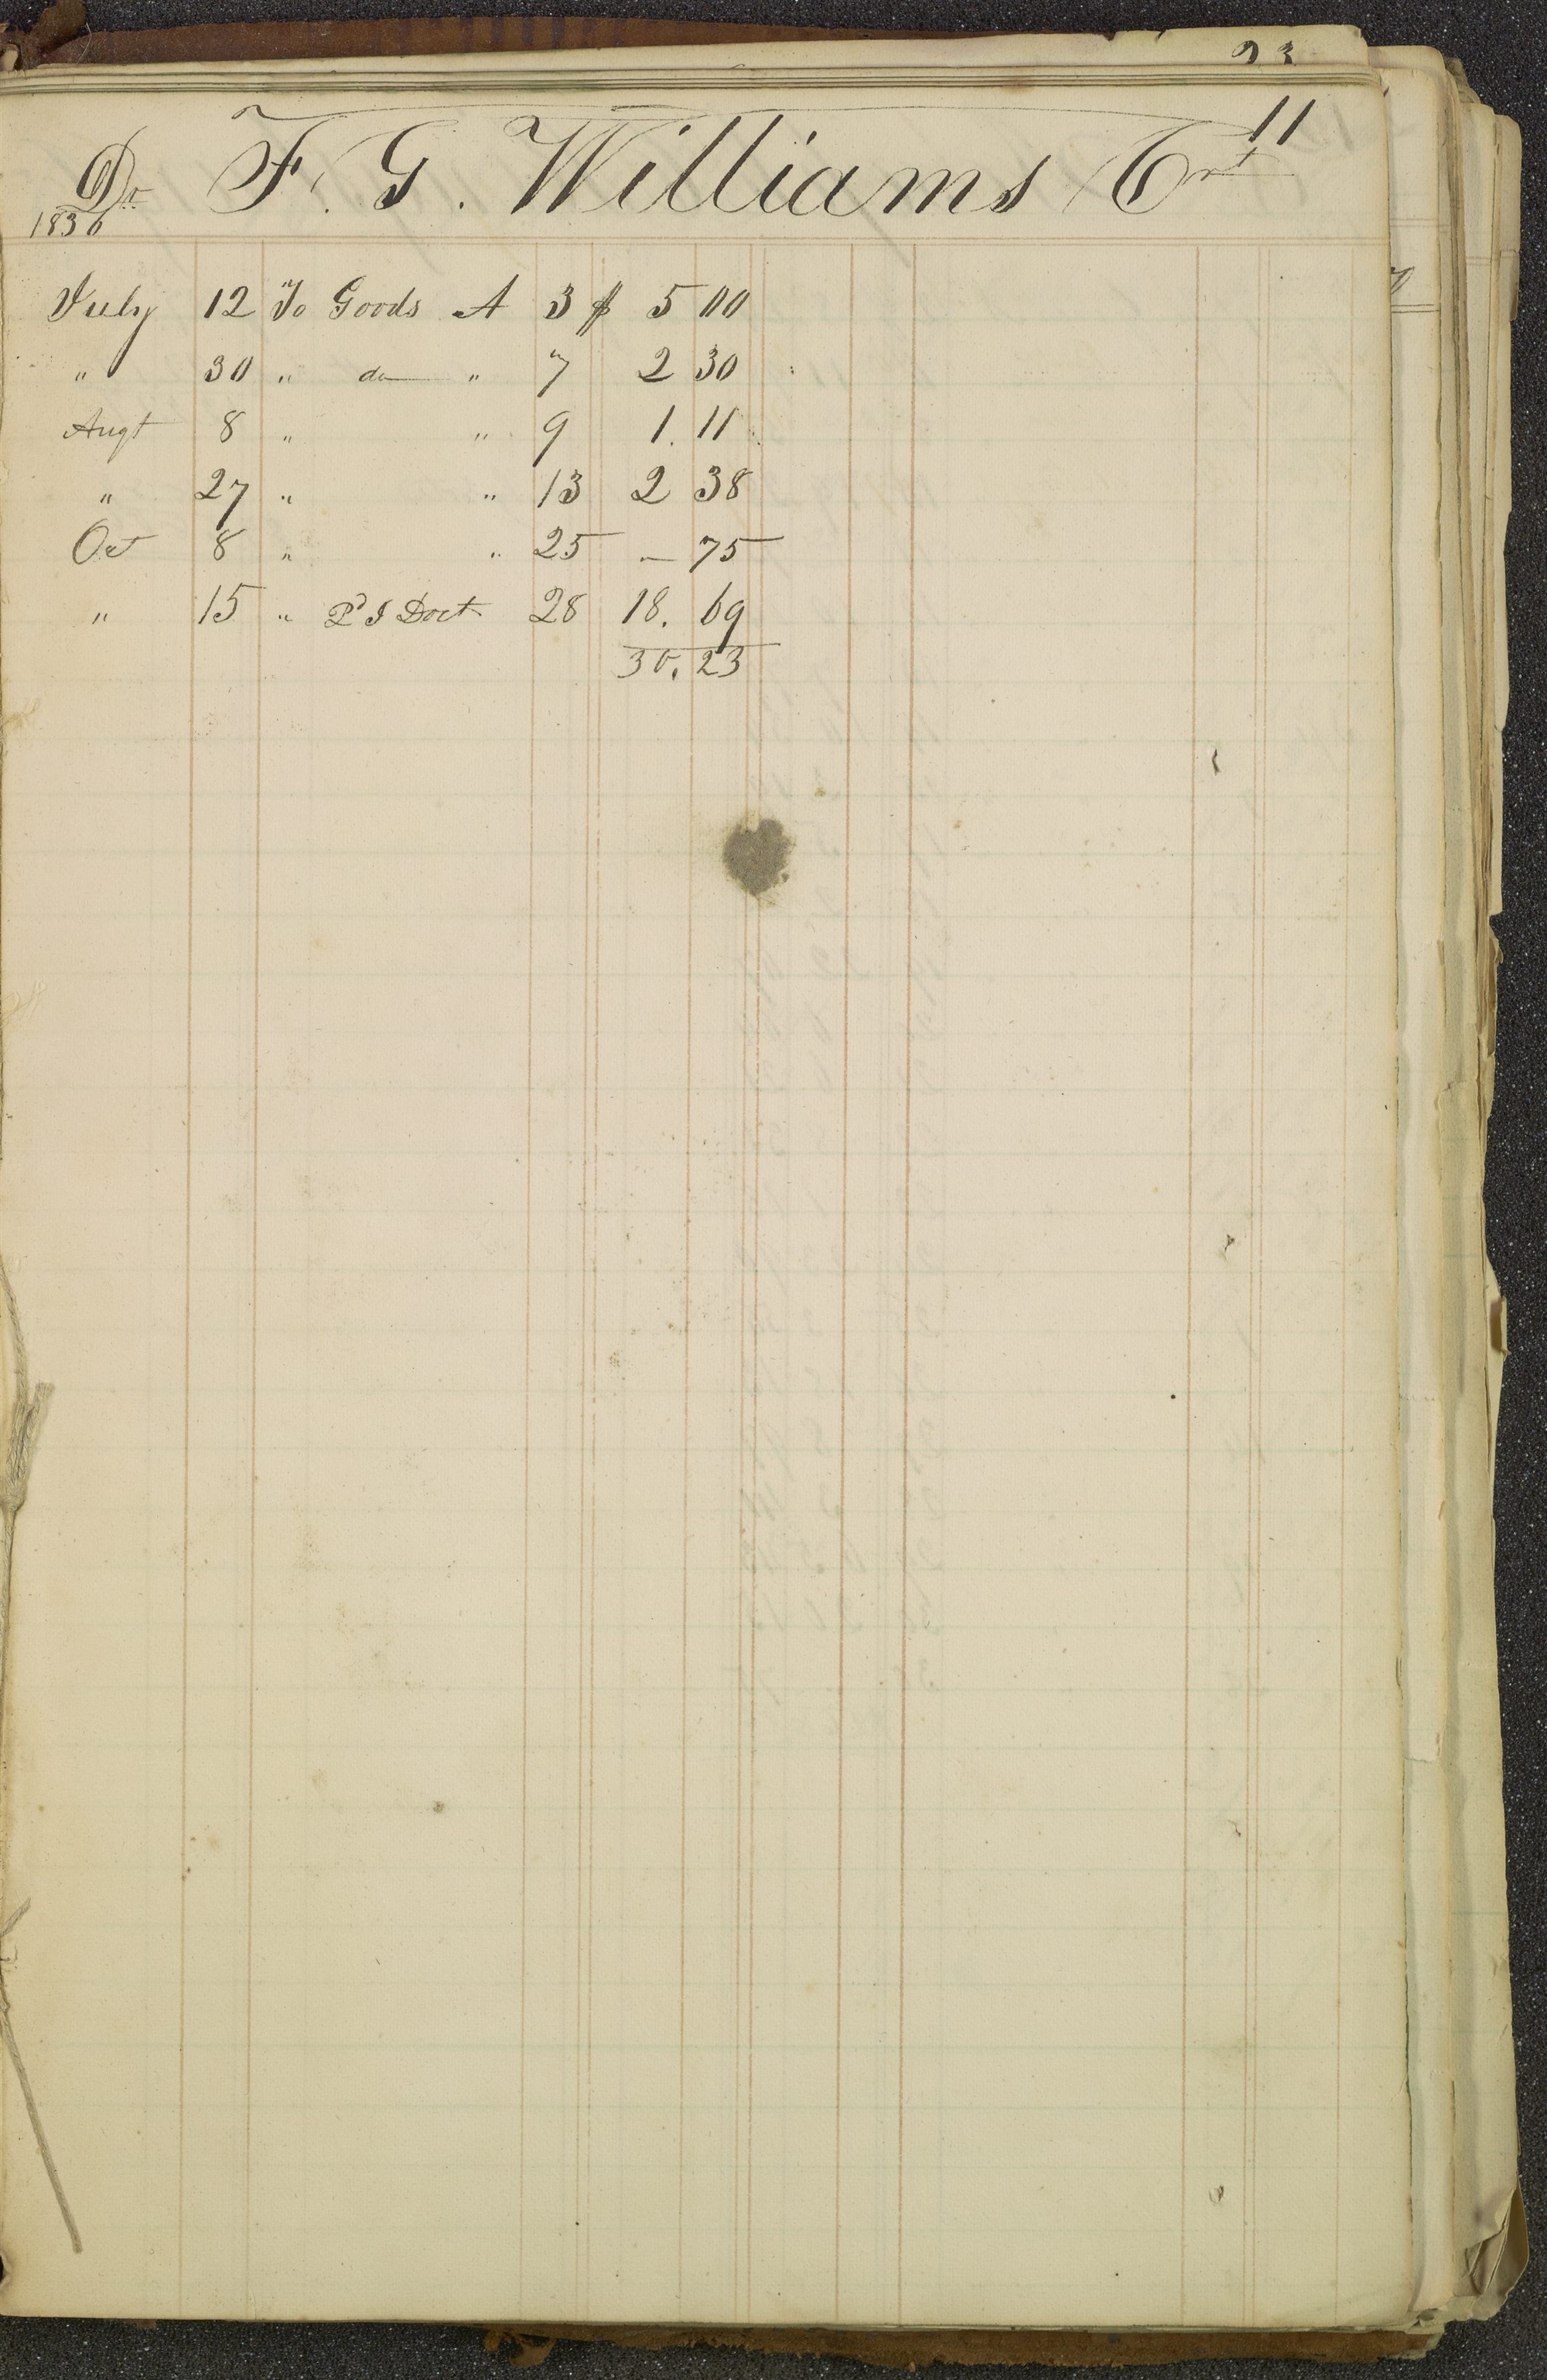 23
11
Dr F. G. Williams Crt
1836
July 12 To Goods A 3 $ 5 00
" 30 " do " 7 2 30
Augt 8 " " 9 1. 11
" 27 " " 13 2 38
Oct 8 " " 25 – 75
" 15 " Doct 28 18. 69
30. 23